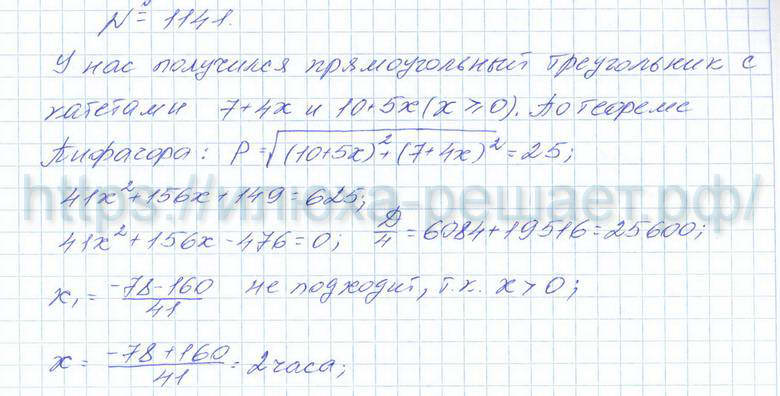 № 1141.
У нас получился прямоугольный треугольник с
катетами 7+4x и 10+5x (x ≥ 0). По теореме
Пифагора: P = √((10+5x)² + (7+4x)²) = 25;
https://илюха-решает.рф/
41x² + 156x + 149 = 625;
41x² + 156x - 476 = 0; D/4 = 6084 + 19516 = 25600;
x₁ = (-78-160)/41 не подходит, т.к. x > 0;
x = (-78+160)/41 = 2 часа;